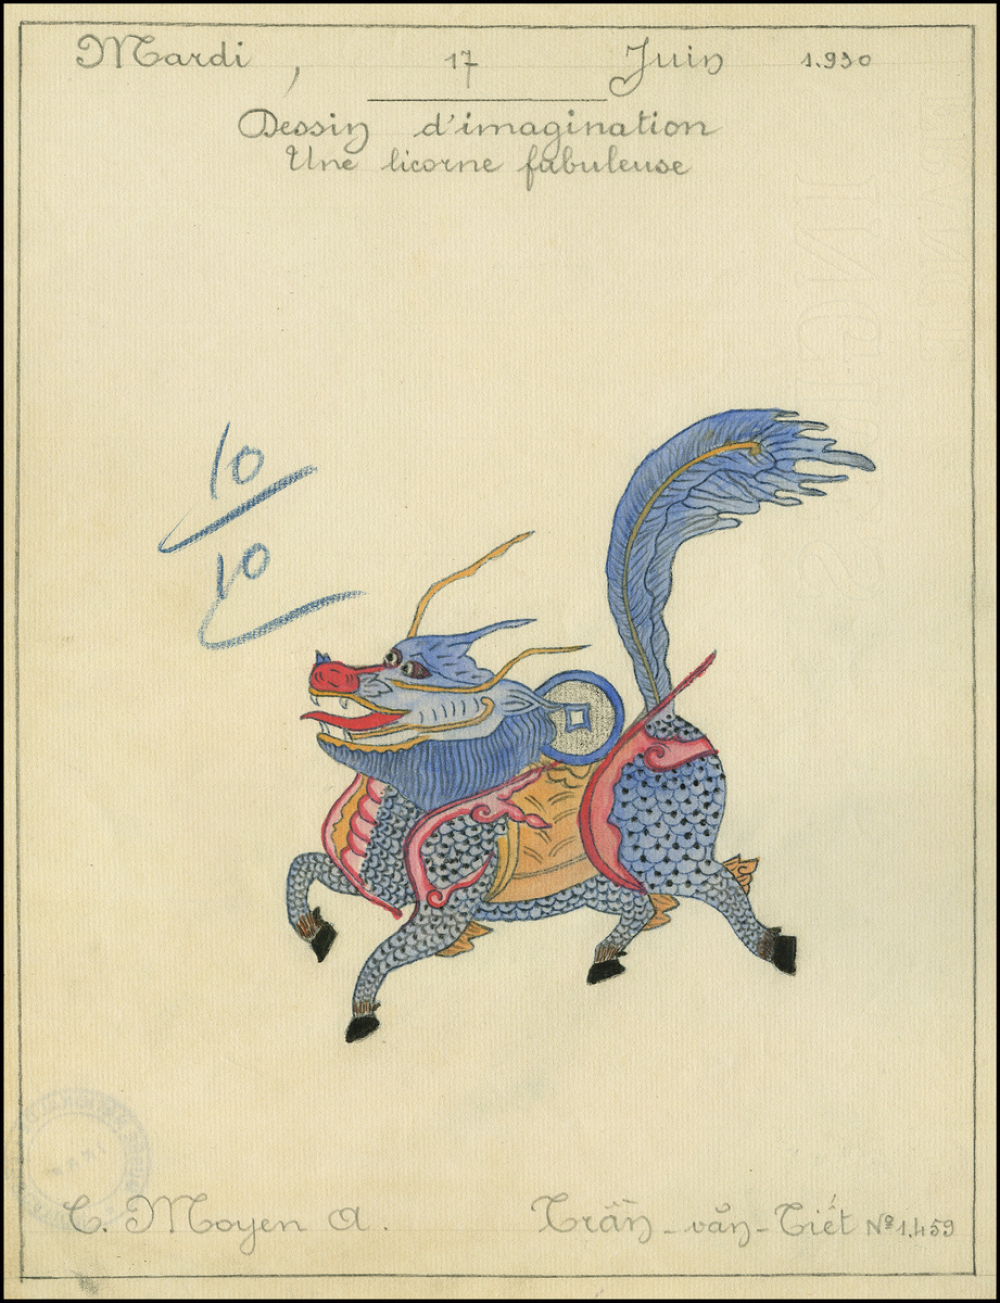 Mardi, 17 Juin 1.930
Dessin d'imagination
Une licorne fabuleuse
10
10
C. Moyen A. Trần-văn-Tiết Nº 1.459